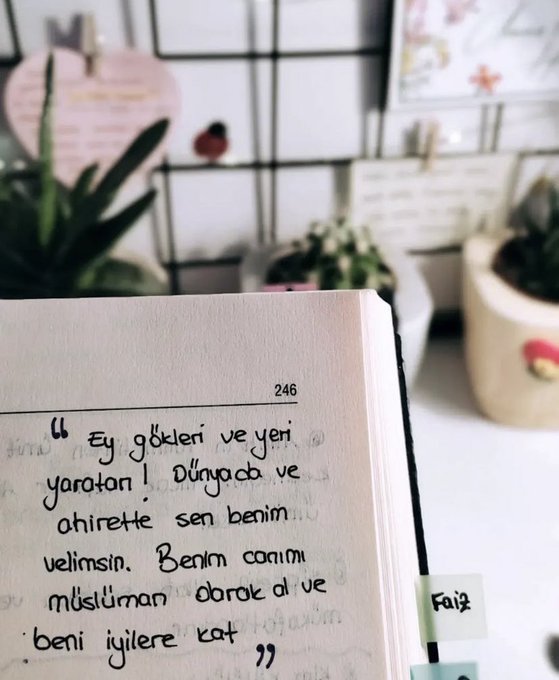 246
“ Ey gökleri ve yeri
yaratan! Dünyada ve
ahirette sen benim
velimsin. Benim canımı
müslüman olarak al ve
beni iyilere kat ”
Faiz